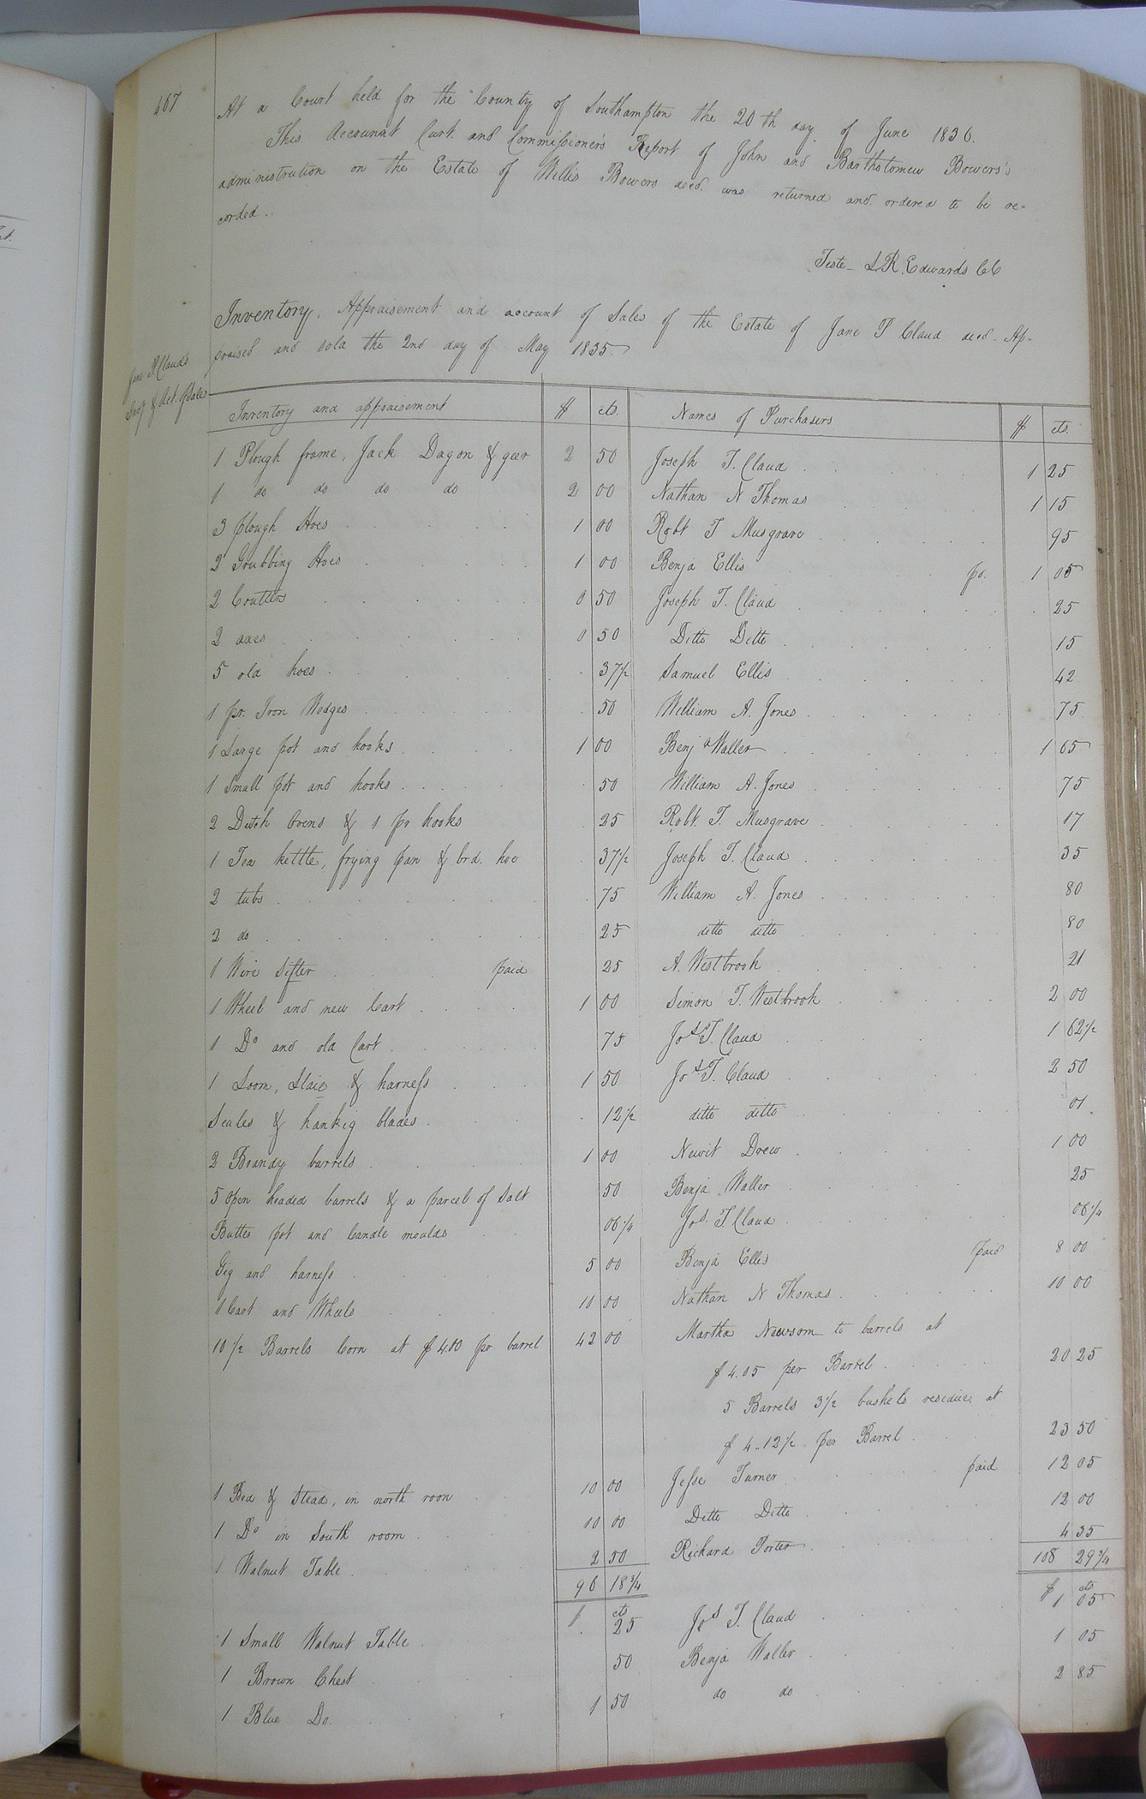 467
At a Court held for the County of Southampton the 20th day of June 1836.
This Account Curt. and Commissioners Report of John and Bartholomew Bowers's
administration on the Estate of Willis Bowers decd. was returned and ordered to be re-
corded.
Teste L R. Edwards CC
Inventory, Appraisement and account of Sales of the Estate of Jane P Claud decd. Ap-
praised and sold the 2nd day of May 1835
Claud's
& Act. of Sales
Inventory and appraisement $ cts. Names of Purchasers $ cts
1 Plough frame, Jack Dagon & geer 2 50 Joseph T. Claud 1 25
1 do do do do 2 00 Nathan N Thomas 1 15
3 plough Hoes 1 00 Robt T Musgrave 95
2 Grubbing Hoes 1 00 Benja Ellis pd. 1 05
2 Coulters 0 50 Joseph T. Claud 25
2 axes 0 50 Ditto Ditto 15
5 old hoes 37½ Samuel Ellis 42
1 pr. Iron Wedges 50 William A. Jones 75
1 Large pot and hooks 1 00 Benja Waller 1 65
1 Small pot and hooks 50 William A. Jones 75
2 Dutch Ovens & 1 pr hooks 25 Robt. T. Musgrave 17
1 Tea kettle, frying pan & brd. hoe 37½ Joseph T. Claud 35
2 tubs 75 William A. Jones 80
2 do 25 ditto ditto 80
1 Wire Sifter paid 25 A. Westbrook 21
1 Wheel and new Cart 1 00 Simon T. Westbrook 2 00
1 Do and old Cart 75 Jos T. Claud 1 62½
1 Loom, Slaie & harness 1 50 Jos T. Claud 2 50
Scales & blades 12½ ditto ditto 01
2 Brandy barrels 1 00 Newit Drew 1 00
5 open headed barrels & a parcel of Salt 50 Benja Waller 25
Butter pot and Candle moulds 06¼ Jos. T. Claud 06¼
Gig and harness 5 00 Benja Ellis paid 8 00
1 Cart and Wheels 10 00 Nathan N Thomas 10 00
10½ Barrels Corn at $4.00 pr barrel 42 00 Martha Newsom to barrels at
$ 4.05 per Barrel 20 25
5 Barrels 3½ bushels residue at
$ 4.12½ per Barrel 23 50
1 Bed & Stead, in north room 10 00 Jesse Turner paid 12 05
1 Do in South room 10 00 Ditto Ditto 12 00
1 Walnut Table 2 50 Richard Porter 4 35
96 18¾ 108 29¾
$ cts $ cts
1 Small Walnut Table 25 Jos T. Claud 1 05
1 Brown Chest 50 Benja Waller 1 05
1 Blue Do 1 50 do do 2 85